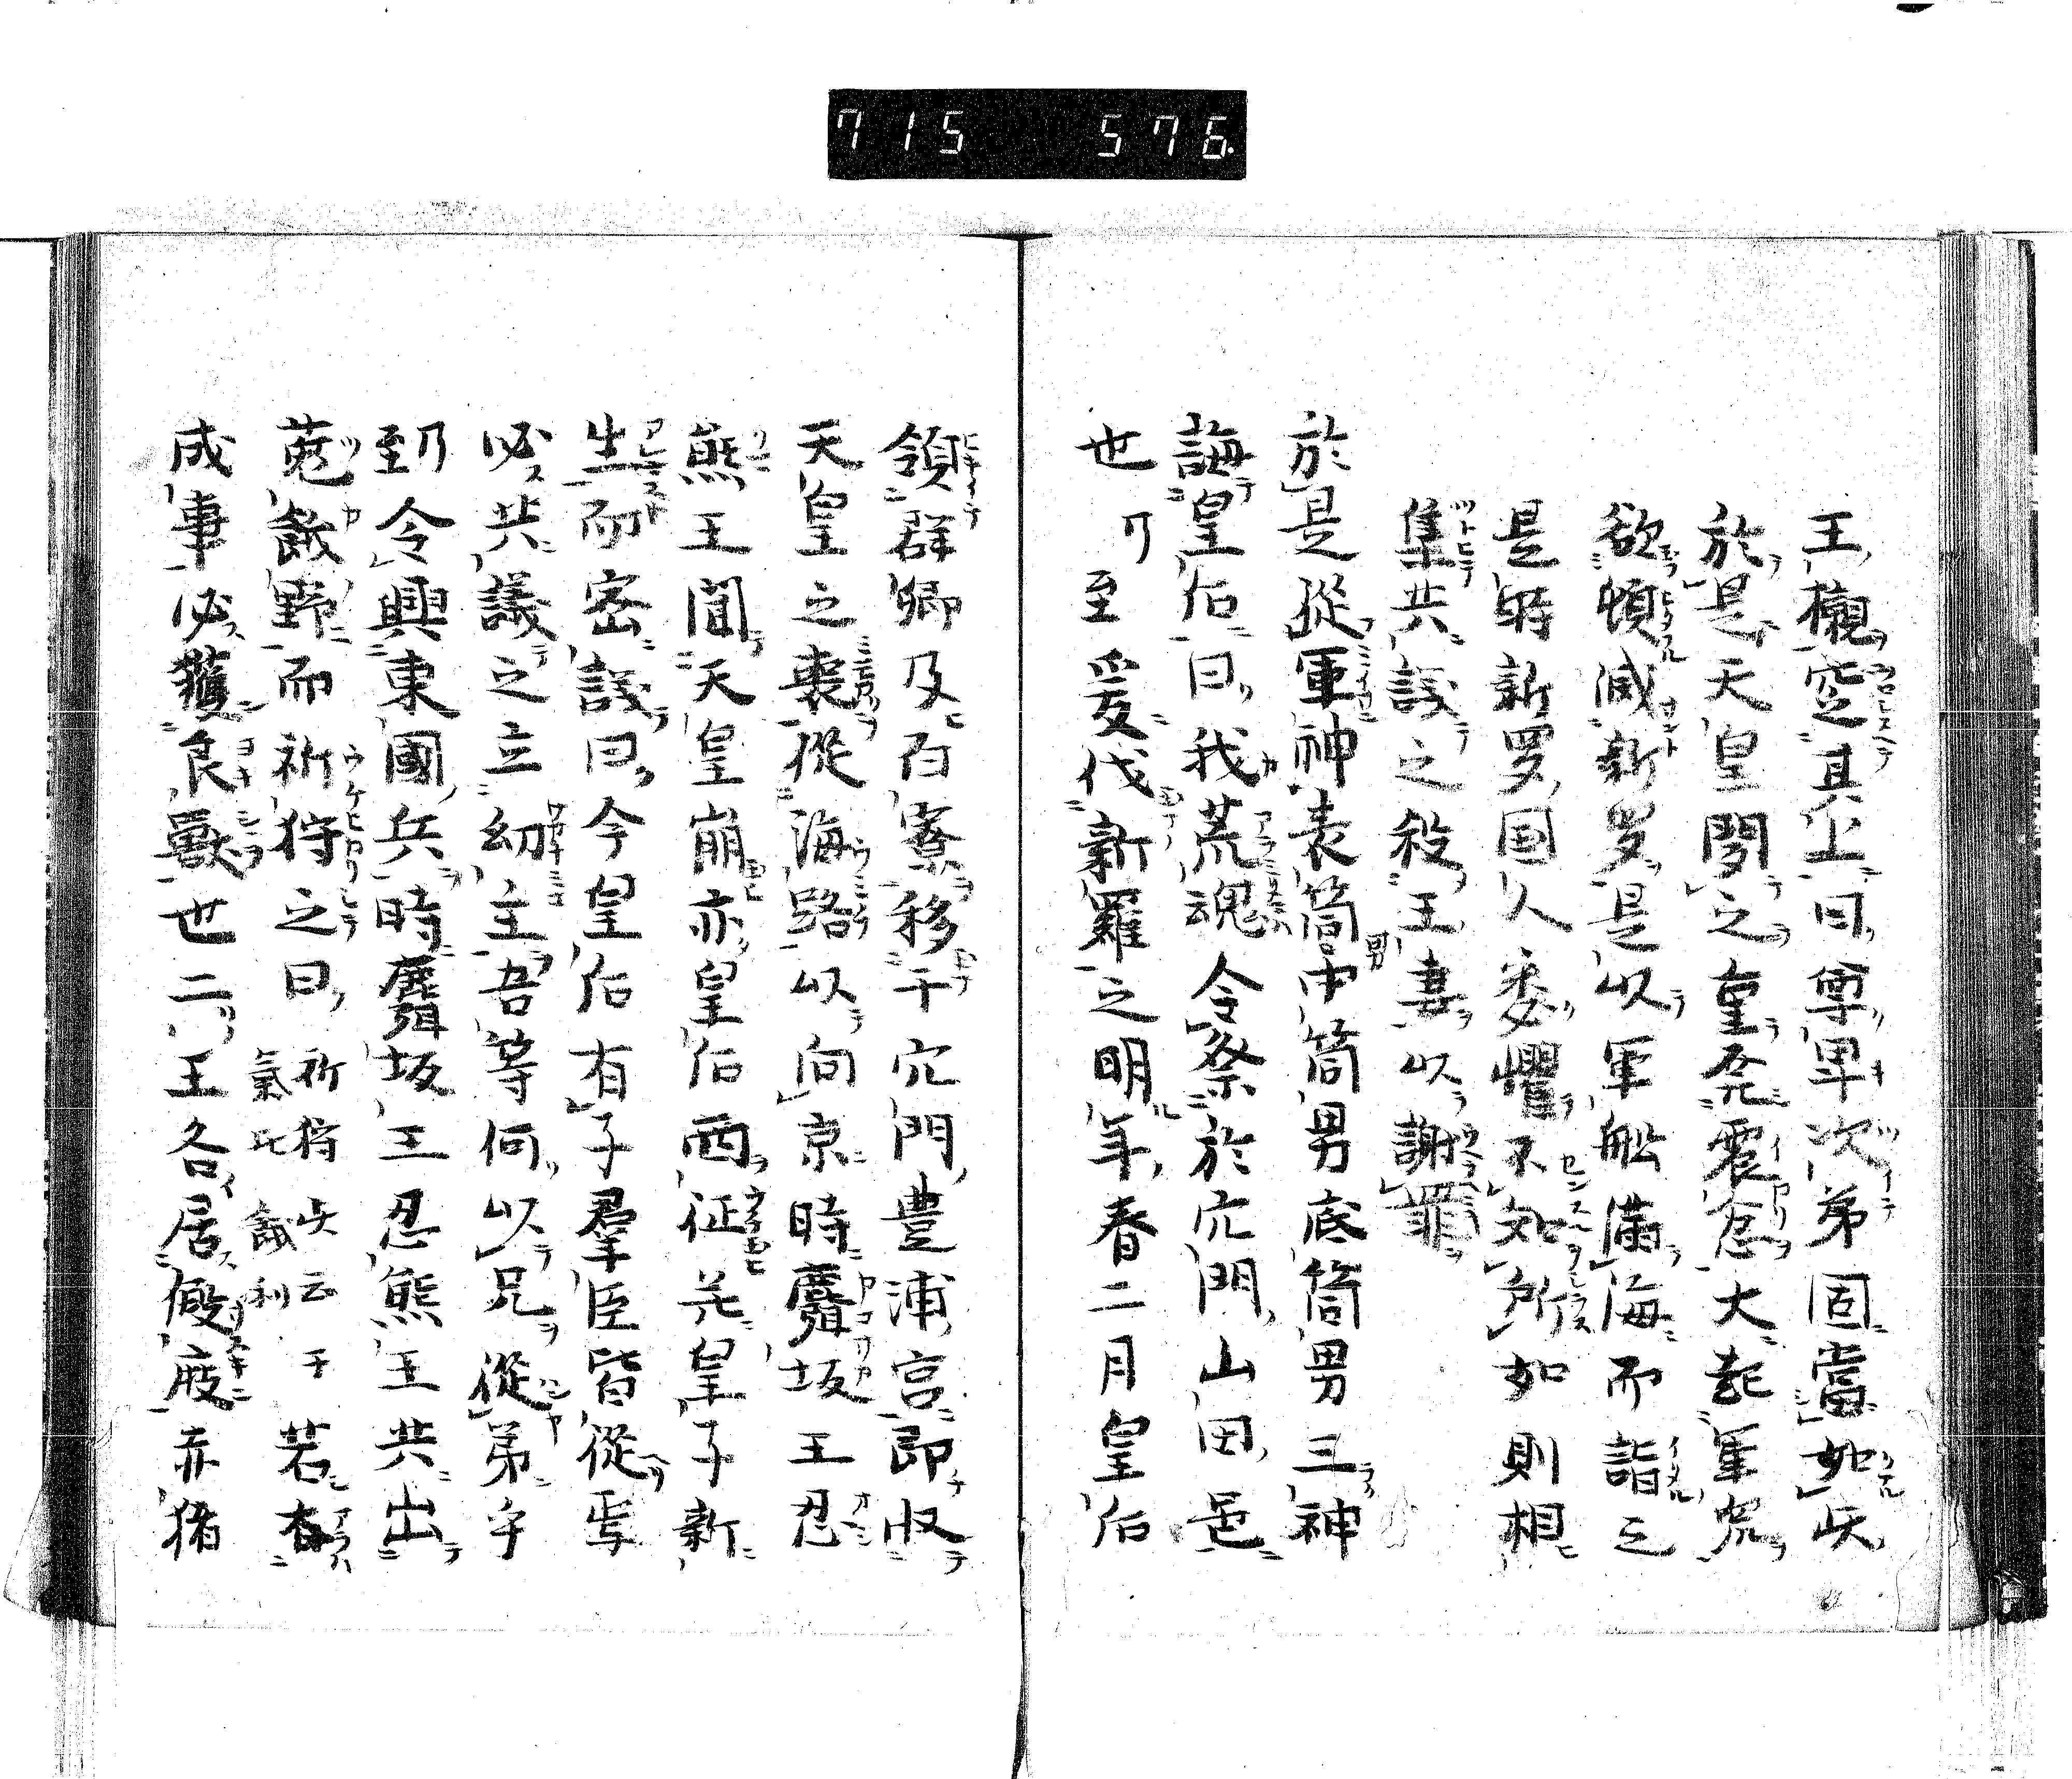 715 576
王櫬窆其上曰尊卑次第固當如此
於是天皇聞之重發震忿大起軍衆
欲頓滅新罗是以軍舩滿海而詣之
是時新罗国人悉懼不知所如則相
集共議之殺王妻以謝罪
於是從軍神表筒男中筒男底筒男三神
誨皇后曰我荒魂令祭於穴門山田邑
也乃至爰伐新羅之明年春二月皇后
領群卿及百寮移于穴門豊浦宮即收
天皇之喪從海路以向京時麛坂王忍
熊王聞天皇崩亦皇后西征并皇子新
生而密議曰今皇后有子羣臣皆從焉
必共議之立幼主吾等何以兄從弟乎
乃到令興東國兵時麛坂王忍熊王共出
菟餓野而祈狩之曰祈狩此云于氣比餓利若有
成事必獲良獸也二王各居假庪赤猪